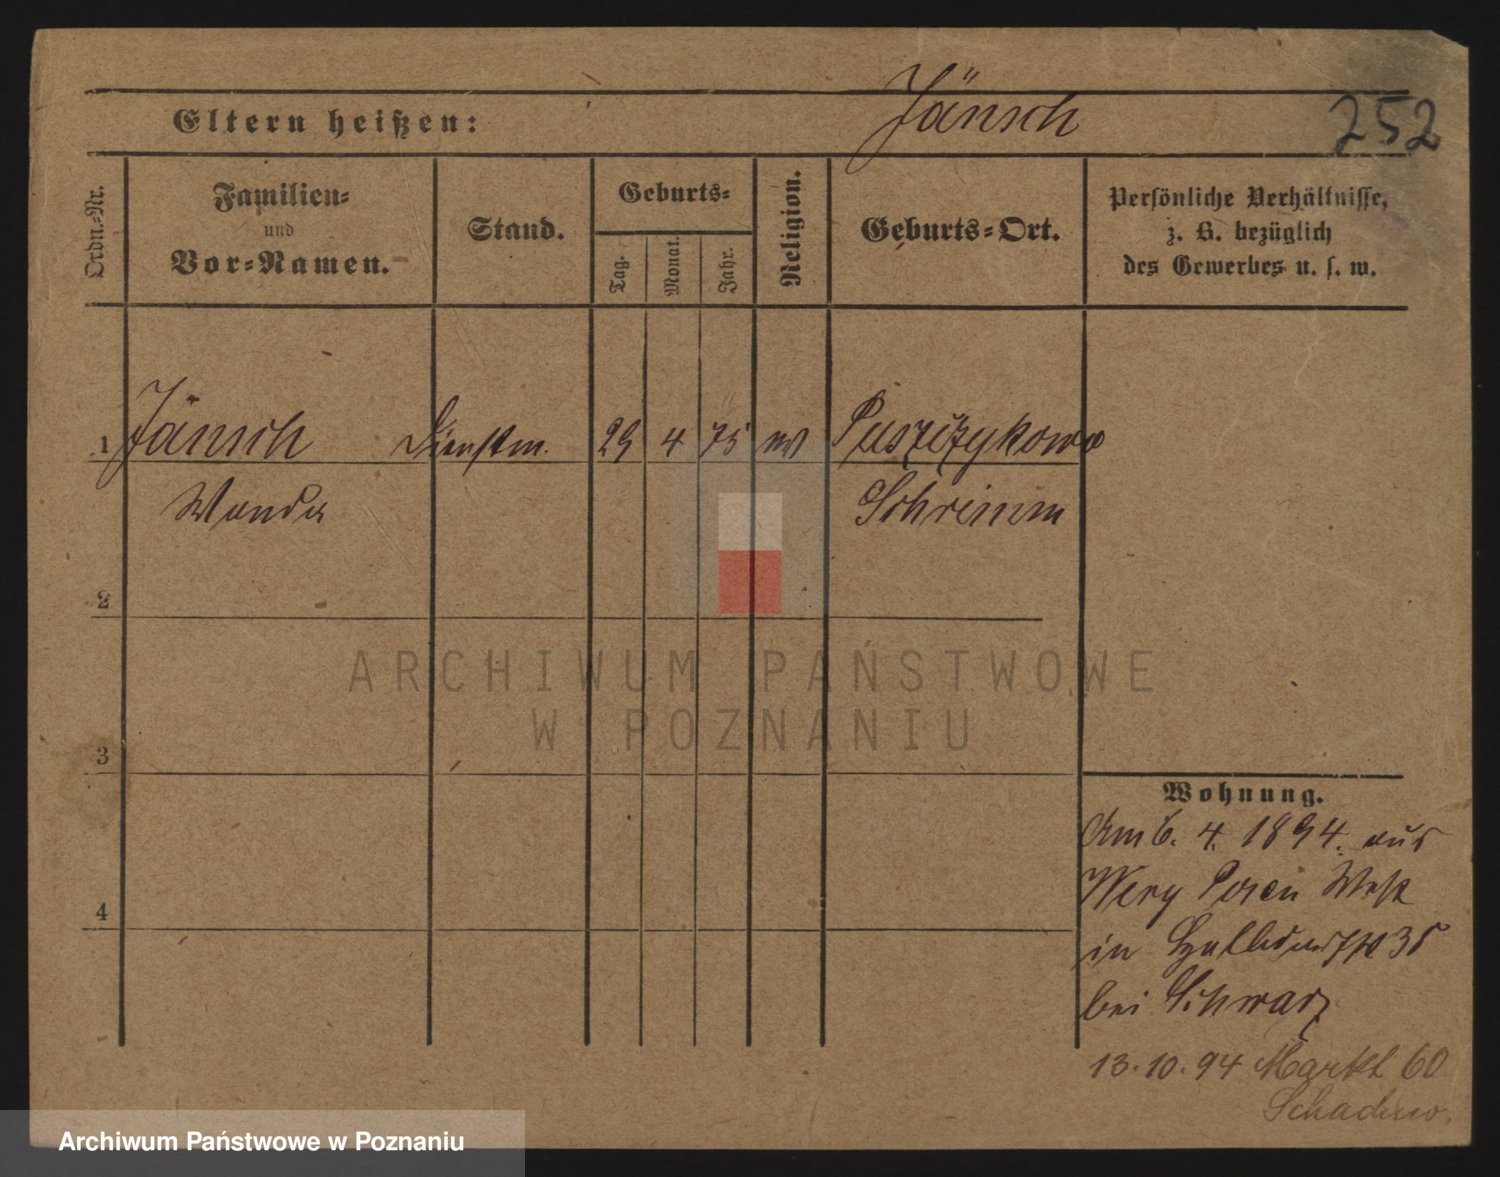 Jänsch
252
Eltern heißen:
Ordn.=Nr.
Familien=
und
Vor=Namen.
Stand.
Geburts=
Tag.
Monat.
Jahr.
Religion.
Geburts=Ort.
Persönliche Verhältnisse,
z. B. bezüglich
des Gewerbes u. s. w.
1 Jänsch Dienstm. 29 4 75 Puszczykowo
Wanda Schrimm
2
3
4
Wohnung.
Am 6. 4. 1894. aus
Posen West
in 35
bei Schwarz
13.10.94 Markt 60
ARCHIWUM PAŃSTWOWE
W POZNANIU
Archiwum Państwowe w Poznaniu